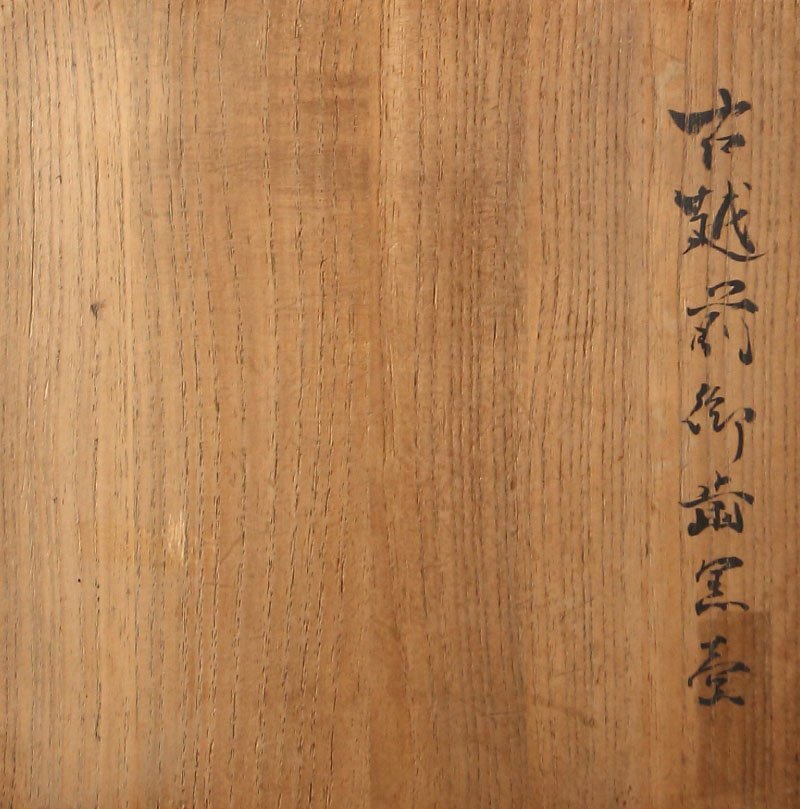 古越前御歯黒壺